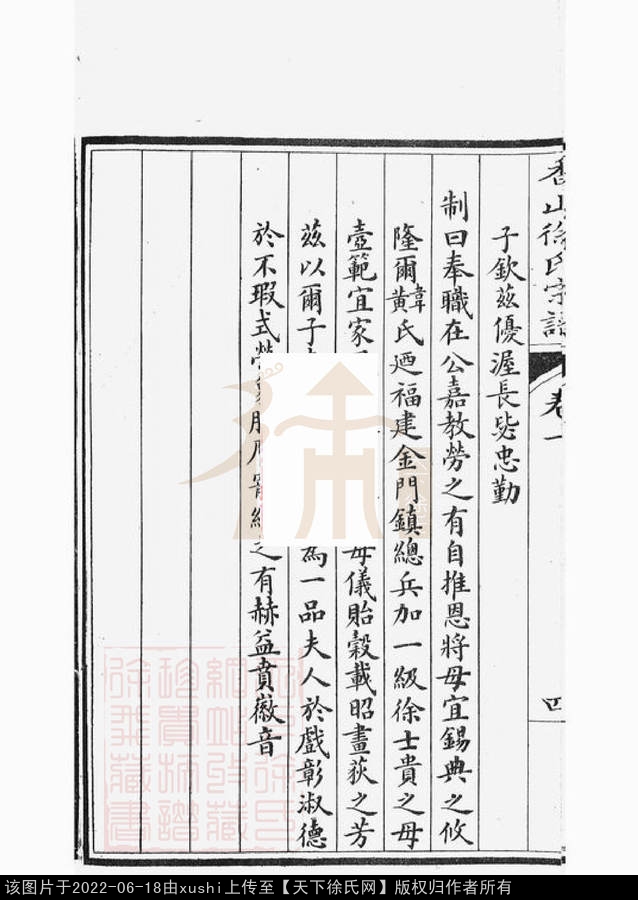 香山徐氏宗譜
卷一
四
子欽茲優渥長毖忠勤
制曰奉職在公嘉教勞之有自推恩將母宜錫典之攸
隆爾黃韋氏迺福建金門鎮總兵加一級徐士貴之母
壼範宜家 母儀貽穀載昭畫荻之芳
茲以爾子 為一品夫人於戲彰淑德
於不瑕式 之有赫益賁徽音
该图片于2022-06-18由xushi上传至【天下徐氏网】版权归作者所有